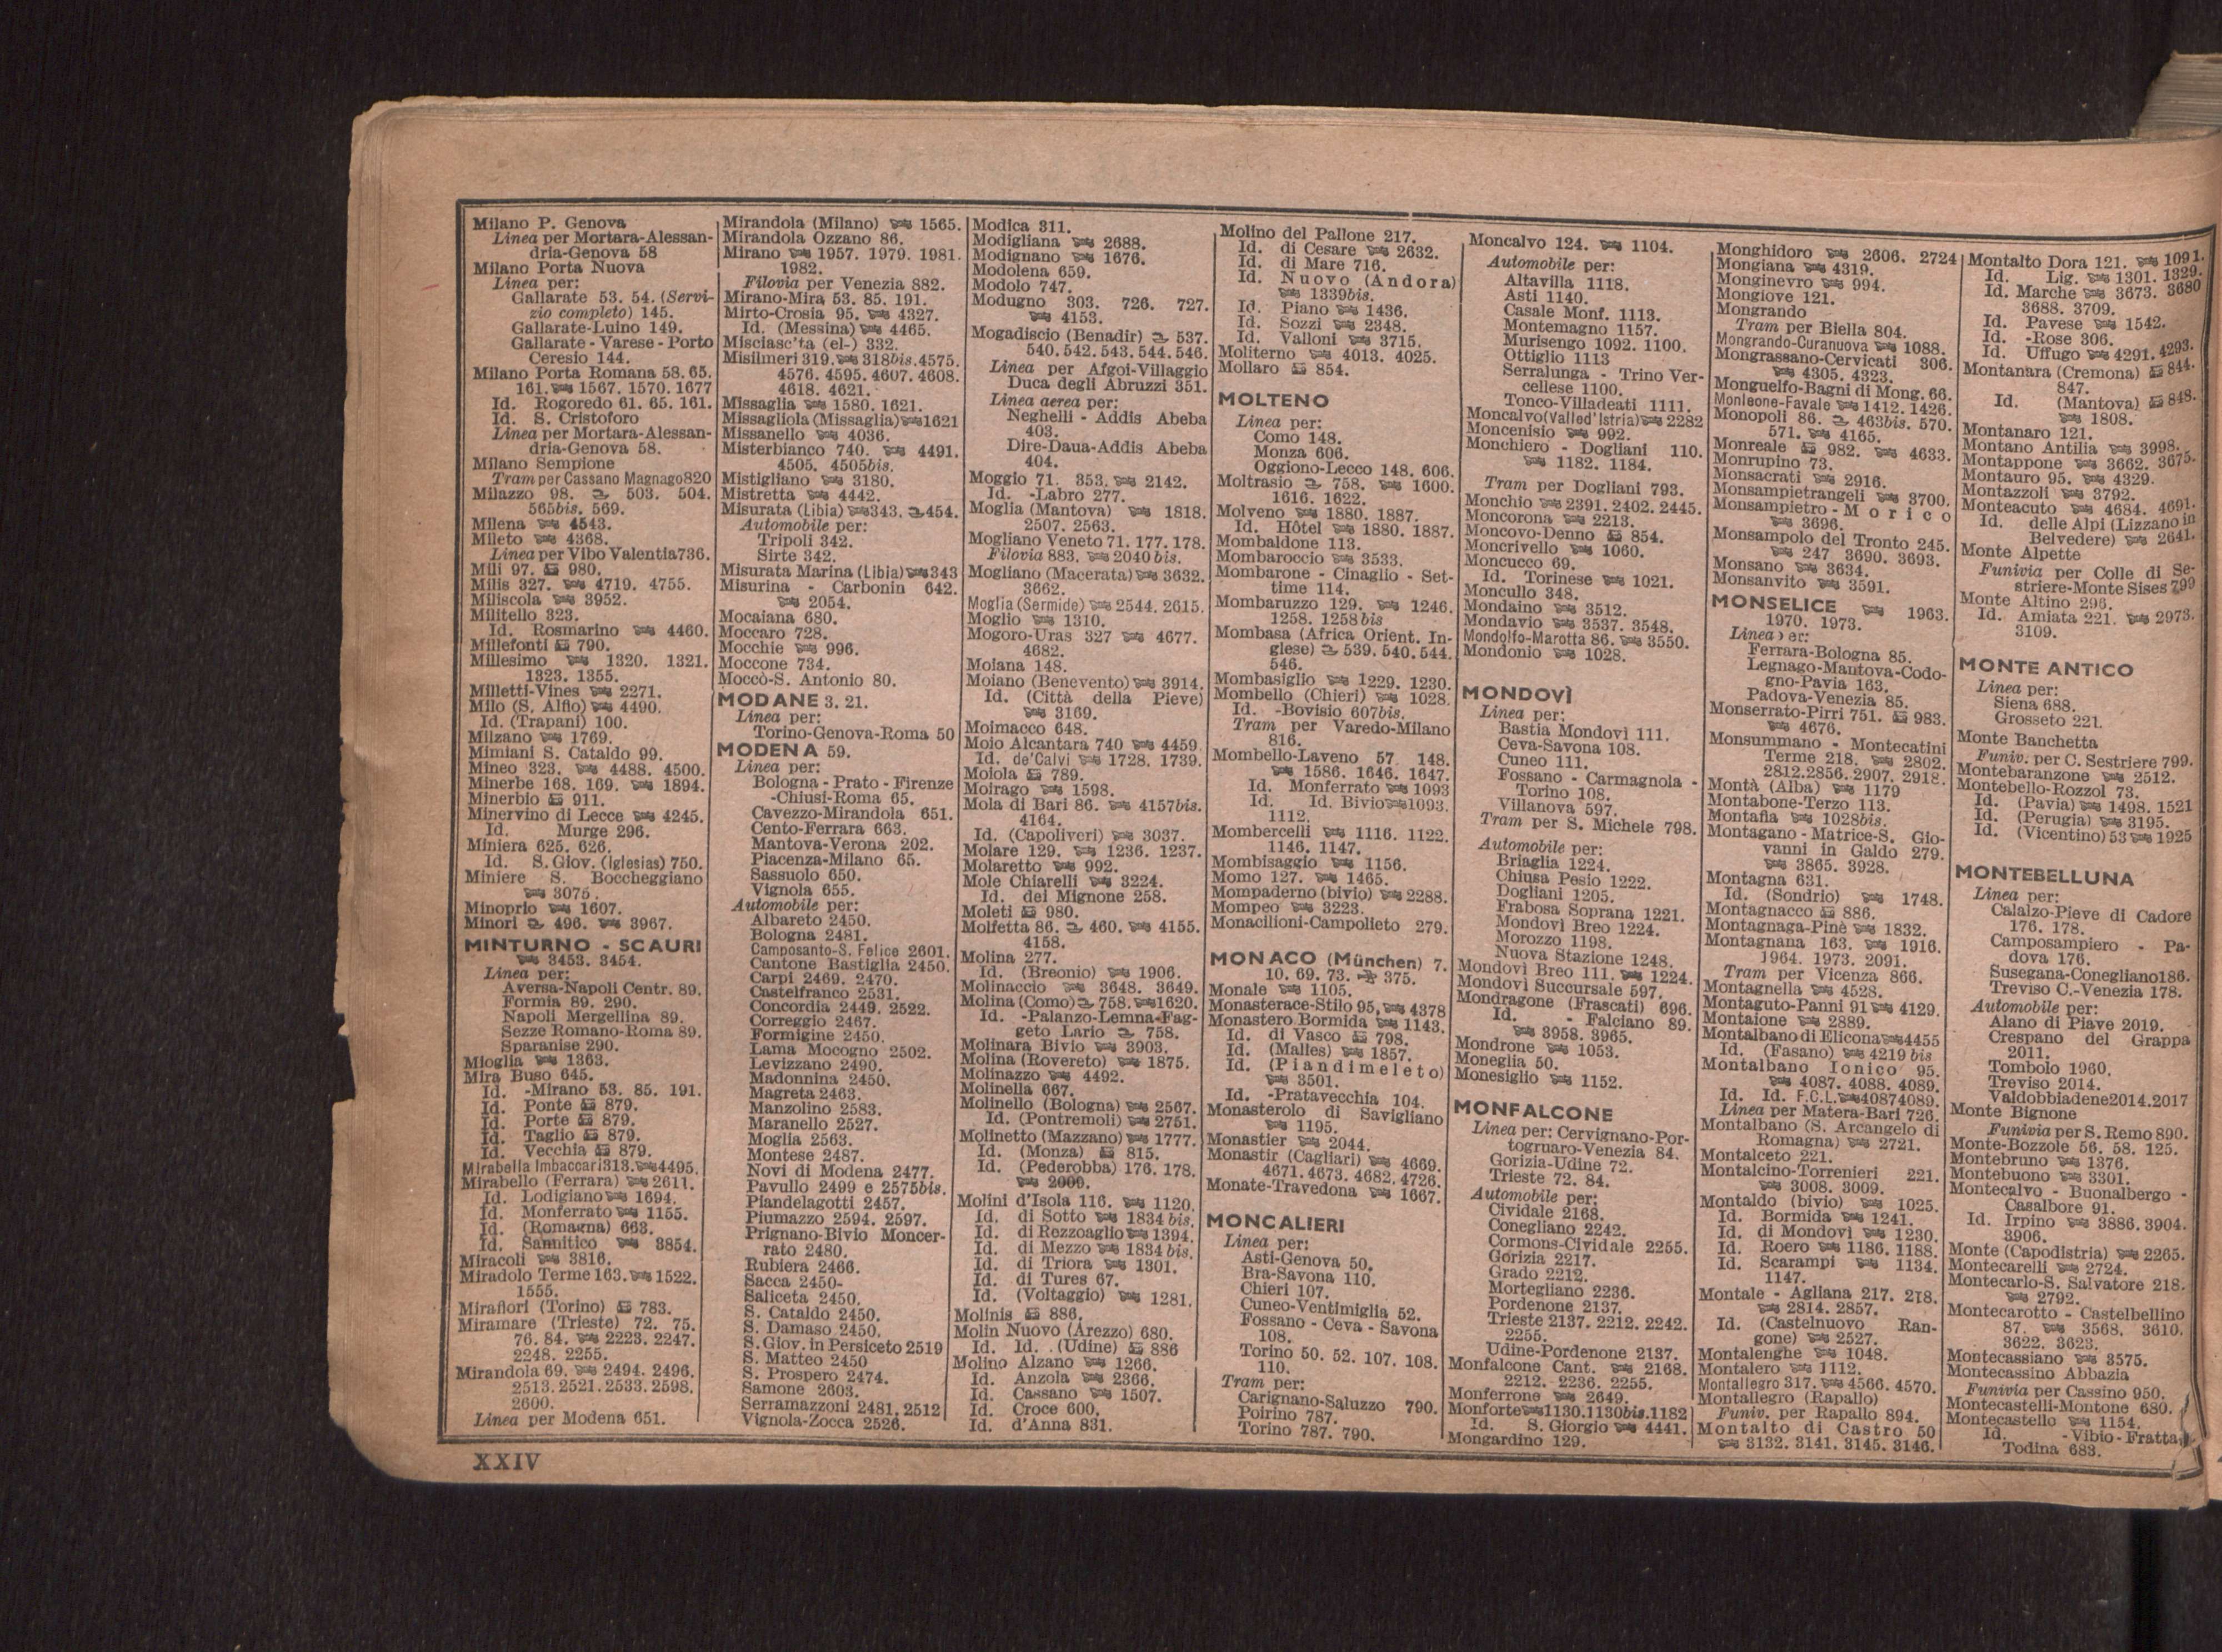 Milano P. Genova
Linea per Mortara-Alessan-
dria-Genova 58
Milano Porta Nuova
Linea per:
Gallarate 53. 54. (Servi-
zio completo) 145.
Gallarate-Luino 149.
Gallarate - Varese - Porto
Ceresio 144.
Milano Porta Romana 58. 65.
161. 1567. 1570. 1677
Id. Rogoredo 61. 65. 161.
Id. S. Cristoforo
Linea per Mortara-Alessan-
dria-Genova 58.
Milano Sempione
Tram per Cassano Magnago 820
Milazzo 98. 503. 504.
565bis. 569.
Milena 4543.
Mileto 4368.
Linea per Vibo Valentia 736.
Mili 97. 980.
Milis 327. 4719. 4755.
Miliscola 3952.
Militello 323.
Id. Rosmarino 4460.
Millefonti 790.
Millesimo 1320. 1321.
1323. 1355.
Milletti-Vines 2271.
Milo (S. Alfio) 4490.
Id. (Trapani) 100.
Milzano 1769.
Mimiani S. Cataldo 99.
Mineo 323. 4488. 4500.
Minerbe 168. 169. 1894.
Minerbio 911.
Minervino di Lecce 4245.
Id. Murge 296.
Miniera 625. 626.
Id. S. Giov. (Iglesias) 750.
Miniere S. Boccheggiano
3075.
Minoprio 1607.
Minori 496. 3967.
MINTURNO - SCAURI
3453. 3454.
Linea per:
Aversa-Napoli Centr. 89.
Formia 89. 290.
Napoli Mergellina 89.
Sezze Romano-Roma 89.
Sparanise 290.
Mioglia 1363.
Mira Buso 645.
Id. -Mirano 53. 85. 191.
Id. Ponte 879.
Id. Porte 879.
Id. Taglio 879.
Id. Vecchia 879.
Mirabella Imbaccari 313. 4495.
Mirabello (Ferrara) 2611.
Id. Lodigiano 1694.
Id. Monferrato 1155.
Id. (Romagna) 663.
Id. Sannitico 3854.
Miracoli 3816.
Miradolo Terme 163. 1522.
1555.
Mirafiori (Torino) 783.
Miramare (Trieste) 72. 75.
76. 84. 2223. 2247.
2248. 2255.
Mirandola 69. 2494. 2496.
2513. 2521. 2533. 2598.
2600.
Linea per Modena 651.
Mirandola (Milano) 1565.
Mirandola Ozzano 86.
Mirano 1957. 1979. 1981.
1982.
Filovia per Venezia 882.
Mirano-Mira 53. 85. 191.
Mirto-Crosia 95. 4327.
Id. (Messina) 4465.
Misciasc'ta (el-) 332.
Misilmeri 319. 318bis. 4575.
4576. 4595. 4607. 4608.
4618. 4621.
Missaglia 1580. 1621.
Missagliola (Missaglia) 1621
Missanello 4036.
Misterbianco 740. 4491.
4505. 4505bis.
Mistigliano 3180.
Mistretta 4442.
Misurata (Libia) 343. 454.
Automobile per:
Tripoli 342.
Sirte 342.
Misurata Marina (Libia) 343
Misurina - Carbonin 642.
2054.
Mocaiana 680.
Moccaro 728.
Mocchie 996.
Moccone 734.
Moccò-S. Antonio 80.
MODANE 3. 21.
Linea per:
Torino-Genova-Roma 50
MODENA 59.
Linea per:
Bologna - Prato - Firenze
-Chiusi-Roma 65.
Cavezzo-Mirandola 651.
Cento-Ferrara 663.
Mantova-Verona 202.
Piacenza-Milano 65.
Sassuolo 650.
Vignola 655.
Automobile per:
Albareto 2450.
Bologna 2481.
Camposanto-S. Felice 2601.
Cantone Bastiglia 2450.
Carpi 2469. 2470.
Castelfranco 2531.
Concordia 2449. 2522.
Correggio 2467.
Formigine 2450.
Lama Mocogno 2502.
Levizzano 2490.
Madonnina 2450.
Magreta 2463.
Manzolino 2583.
Maranello 2527.
Moglia 2563.
Montese 2487.
Novi di Modena 2477.
Pavullo 2499 e 2575bis.
Piandelagotti 2457.
Piumazzo 2594. 2597.
Prignano-Bivio Moncer-
rato 2480.
Rubiera 2466.
Sacca 2450-
Saliceta 2450.
S. Cataldo 2450.
S. Damaso 2450.
S. Giov. in Persiceto 2519
S. Matteo 2450
S. Prospero 2474.
Samone 2603.
Serramazzoni 2481. 2512
Vignola-Zocca 2526.
Modica 311.
Modigliana 2688.
Modignano 1676.
Modolena 659.
Modolo 747.
Modugno 303. 726. 727.
4153.
Mogadiscio (Benadir) 537.
540. 542. 543. 544. 546.
Linea per Afgoi-Villaggio
Duca degli Abruzzi 351.
Linea aerea per:
Neghelli - Addis Abeba
403.
Dire-Daua-Addis Abeba
404.
Moggio 71. 353. 2142.
Id. -Labro 277.
Moglia (Mantova) 1818.
2507. 2563.
Mogliano Veneto 71. 177. 178.
Filovia 883. 2040bis.
Mogliano (Macerata) 3632.
3662.
Moglia (Sermide) 2544. 2615.
Moglio 1310.
Mogoro-Uras 327 4677.
4682.
Moiana 148.
Moiano (Benevento) 3914.
Id. (Città della Pieve)
3169.
Moimacco 648.
Moio Alcantara 740 4459.
Id. de'Calvi 1728. 1739.
Moiola 789.
Moirago 1598.
Mola di Bari 86. 4157bis.
4164.
Id. (Capoliveri) 3037.
Molare 129. 1236. 1237.
Molaretto 992.
Mole Chiarelli 3224.
Id. del Mignone 258.
Moleti 980.
Molfetta 86. 460. 4155.
4158.
Molina 277.
Id. (Breonio) 1906.
Molinaccio 3648. 3649.
Molina (Como) 758. 1620.
Id. -Palanzo-Lemna-Fag-
geto Lario 758.
Molinara Bivio 3903.
Molina (Rovereto) 1875.
Molinazzo 4492.
Molinella 667.
Molinello (Bologna) 2567.
Id. (Pontremoli) 2751.
Molinetto (Mazzano) 1777.
Id. (Monza) 815.
Id. (Pederobba) 176. 178.
2000.
Molini d'Isola 116. 1120.
Id. di Sotto 1834bis.
Id. di Rezzoaglio 1394.
Id. di Mezzo 1834bis.
Id. di Triora 1301.
Id. di Tures 67.
Id. (Voltaggio) 1281.
Molinis 886.
Molin Nuovo (Arezzo) 680.
Id. Id. (Udine) 886
Molino Alzano 1266.
Id. Anzola 2366.
Id. Cassano 1507.
Id. Croce 600.
Id. d'Anna 831.
Molino del Pallone 217.
Id. di Cesare 2632.
Id. di Mare 716.
Id. Nuovo (Andora)
1339bis.
Id. Piano 1436.
Id. Sozzi 2348.
Id. Valloni 3715.
Moliterno 4013. 4025.
Mollaro 854.
MOLTENO
Linea per:
Como 148.
Monza 606.
Oggiono-Lecco 148. 606.
Moltrasio 758. 1600.
1616. 1622.
Molveno 1880. 1887.
Id. Hôtel 1880. 1887.
Mombaldone 113.
Mombaroccio 3533.
Mombarone - Cinaglio - Set-
time 114.
Mombaruzzo 129. 1246.
1258. 1258bis
Mombasa (Africa Orient. In-
glese) 539. 540. 544.
546.
Mombasiglio 1229. 1230.
Mombello (Chieri) 1028.
Id. -Bovisio 607bis.
Tram per Varedo-Milano
816.
Mombello-Laveno 57 148.
1586. 1646. 1647.
Id. Monferrato 1093
Id. Id. Bivio 1093.
1112.
Mombercelli 1116. 1122.
1146. 1147.
Mombisaggio 1156.
Momo 127. 1465.
Mompaderno (bivio) 2288.
Mompeo 3223.
Monacilioni-Campolieto 279.
MONACO (München) 7.
10. 69. 73. 375.
Monale 1105.
Monasterace-Stilo 95. 4378
Monastero Bormida 1143.
Id. di Vasco 798.
Id. (Malles) 1857.
Id. (Piandimeleto)
3501.
Id. -Pratavecchia 104.
Monasterolo di Savigliano
1195.
Monastier 2044.
Monastir (Cagliari) 4669.
4671. 4673. 4682. 4726.
Monate-Travedona 1667.
MONCALIERI
Linea per:
Asti-Genova 50.
Bra-Savona 110.
Chieri 107.
Cuneo-Ventimiglia 52.
Fossano - Ceva - Savona
108.
Torino 50. 52. 107. 108.
110.
Tram per:
Carignano-Saluzzo 790.
Poirino 787.
Torino 787. 790.
Moncalvo 124. 1104.
Automobile per:
Altavilla 1118.
Asti 1140.
Casale Monf. 1113.
Montemagno 1157.
Murisengo 1092. 1100.
Ottiglio 1113
Serralunga - Trino Ver-
cellese 1100.
Tonco-Villadeati 1111.
Moncalvo(Valle d'Istria) 2282
Moncenisio 992.
Monchiero - Dogliani 110.
1182. 1184.
Tram per Dogliani 793.
Monchio 2391. 2402. 2445.
Moncorona 2213.
Moncovo-Denno 854.
Moncrivello 1060.
Moncucco 69.
Id. Torinese 1021.
Moncullo 348.
Mondaino 3512.
Mondavio 3537. 3548.
Mondolfo-Marotta 86. 3550.
Mondonio 1028.
MONDOVÌ
Linea per:
Bastia Mondovì 111.
Ceva-Savona 108.
Cuneo 111.
Fossano - Carmagnola -
Torino 108.
Villanova 597.
Tram per S. Michele 798.
Automobile per:
Briaglia 1224.
Chiusa Pesio 1222.
Dogliani 1205.
Frabosa Soprana 1221.
Mondovì Breo 1224.
Morozzo 1198.
Nuova Stazione 1248.
Mondovì Breo 111. 1224.
Mondovì Succursale 597.
Mondragone (Frascati) 696.
Id. - Falciano 89.
3958. 3965.
Mondrone 1053.
Moneglia 50.
Monesiglio 1152.
MONFALCONE
Linea per: Cervignano-Por-
togruaro-Venezia 84.
Gorizia-Udine 72.
Trieste 72. 84.
Automobile per:
Cividale 2168.
Conegliano 2242.
Cormons-Cividale 2255.
Gorizia 2217.
Grado 2212.
Mortegliano 2236.
Pordenone 2137.
Trieste 2137. 2212. 2242.
2255.
Udine-Pordenone 2137.
Monfalcone Cant. 2168.
2212. 2236. 2255.
Monferrone 2649.
Monforte 1130.1130bis.1182
Id. S. Giorgio 4441.
Mongardino 129.
Monghidoro 2606. 2724
Mongiana 4319.
Monginevro 994.
Mongiove 121.
Mongrando
Tram per Biella 804.
Mongrando-Curanuova 1088.
Mongrassano-Cervicati 306.
4305. 4323.
Monguelfo-Bagni di Mong. 66.
Monleone-Favale 1412. 1426.
Monopoli 86. 463bis. 570.
571. 4165.
Monreale 982. 4633.
Monrupino 73.
Monsacrati 2916.
Monsampietrangeli 3700.
Monsampietro-Morico
3696.
Monsampolo del Tronto 245.
247 3690. 3693.
Monsano 3634.
Monsanvito 3591.
MONSELICE 1963.
1970. 1973.
Linea per:
Ferrara-Bologna 85.
Legnago-Mantova-Codo-
gno-Pavia 163.
Padova-Venezia 85.
Monserrato-Pirri 751. 983.
4676.
Monsummano - Montecatini
Terme 218. 2802.
2812.2856. 2907. 2918.
Montà (Alba) 1179
Montabone-Terzo 113.
Montafia 1028bis.
Montagano - Matrice-S. Gio-
vanni in Galdo 279.
3865. 3928.
Montagna 631.
Id. (Sondrio) 1748.
Montagnacco 886.
Montagnaga-Pinè 1832.
Montagnana 163. 1916.
1964. 1973. 2091.
Tram per Vicenza 866.
Montagnella 4528.
Montaguto-Panni 91 4129.
Montaione 2889.
Montalbano di Elicona 4455
Id. (Fasano) 4219bis
Montalbano Ionico 95.
4087. 4088. 4089.
Id. Id. F.C.L. 40874089.
Linea per Matera-Bari 726.
Montalbano (S. Arcangelo di
Romagna) 2721.
Montalceto 221.
Montalcino-Torrenieri 221.
3008. 3009.
Montaldo (bivio) 1025.
Id. Bormida 1241.
Id. di Mondovì 1230.
Id. Roero 1186. 1188.
Id. Scarampi 1134.
1147.
Montale - Agliana 217. 218.
2814. 2857.
Id. (Castelnuovo Ran-
gone) 2527.
Montalenghe 1048.
Montalero 1112.
Montallegro 317. 4566. 4570.
Montallegro (Rapallo)
Funiv. per Rapallo 894.
Montalto di Castro 50
3132. 3141. 3145. 3146.
Montalto Dora 121. 1091.
Id. Lig. 1301. 1329.
Id. Marche 3673. 3680
3688. 3709.
Id. Pavese 1542.
Id. -Rose 306.
Id. Uffugo 4291. 4293.
Montanara (Cremona) 844.
847.
Id. (Mantova) 848.
1808.
Montanaro 121.
Montano Antilia 3998.
Montappone 3662. 3675.
Montauro 95. 4329.
Montazzoli 3792.
Monteacuto 4684. 4691.
Id. delle Alpi (Lizzano in
Belvedere) 2641.
Monte Alpette
Funivia per Colle di Se-
striere-Monte Sises 799
Monte Altino 296.
Id. Amiata 221. 2973.
3109.
MONTE ANTICO
Linea per:
Siena 688.
Grosseto 221.
Monte Banchetta
Funiv. per C. Sestriere 799.
Montebaranzone 2512.
Montebello-Rozzol 73.
Id. (Pavia) 1498. 1521
Id. (Perugia) 3195.
Id. (Vicentino) 53 1925
MONTEBELLUNA
Linea per:
Calalzo-Pieve di Cadore
176. 178.
Camposampiero - Pa-
dova 176.
Susegana-Conegliano186.
Treviso C.-Venezia 178.
Automobile per:
Alano di Piave 2019.
Crespano del Grappa
2011.
Tombolo 1960.
Treviso 2014.
Valdobbiadene2014.2017
Monte Bignone
Funivia per S. Remo 890.
Monte-Bozzole 56. 58. 125.
Montebruno 1376.
Montebuono 3301.
Montecalvo - Buonalbergo -
Casalbore 91.
Id. Irpino 3886. 3904.
3906.
Monte (Capodistria) 2265.
Montecarelli 2724.
Montecarlo-S. Salvatore 218.
2792.
Montecarotto - Castelbellino
87. 3568. 3610.
3622. 3623.
Montecassiano 3575.
Montecassino Abbazia
Funivia per Cassino 950.
Montecastelli-Montone 680.
Montecastello 1154.
Id. -Vibio-Fratta
Todina 683.
XXIV